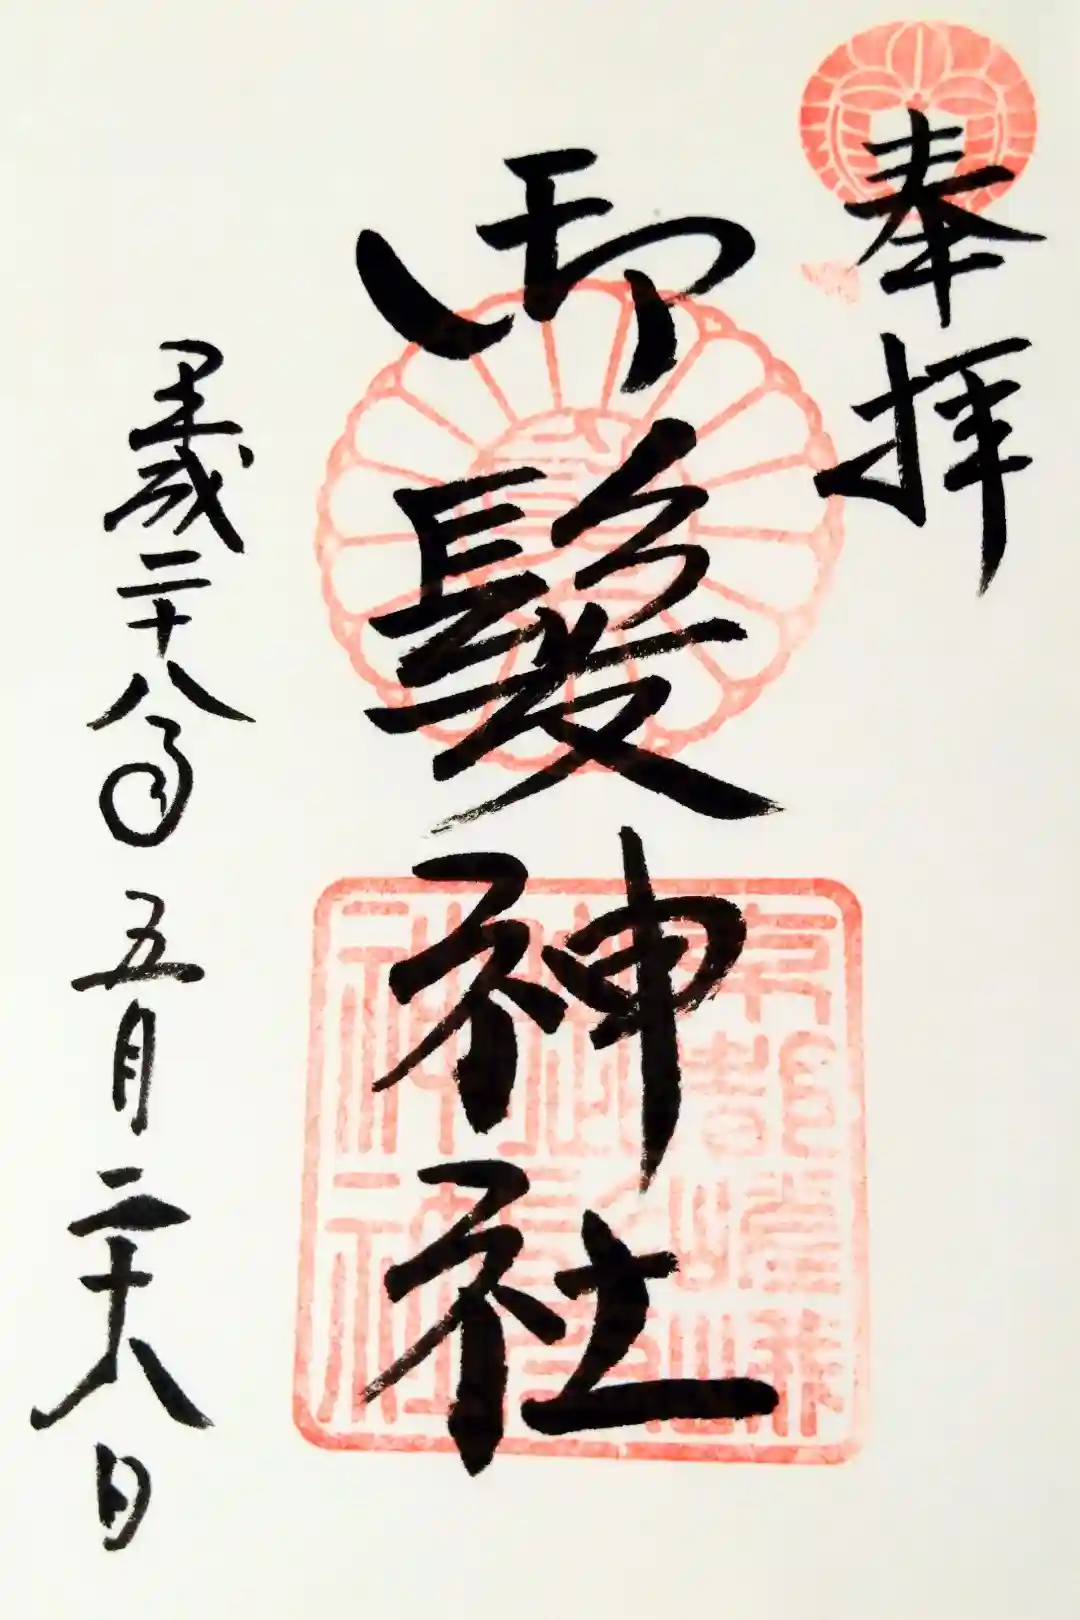 奉拝
御髪神社
平成二十八年五月二十八日
京都嵯峨
御髪
神社